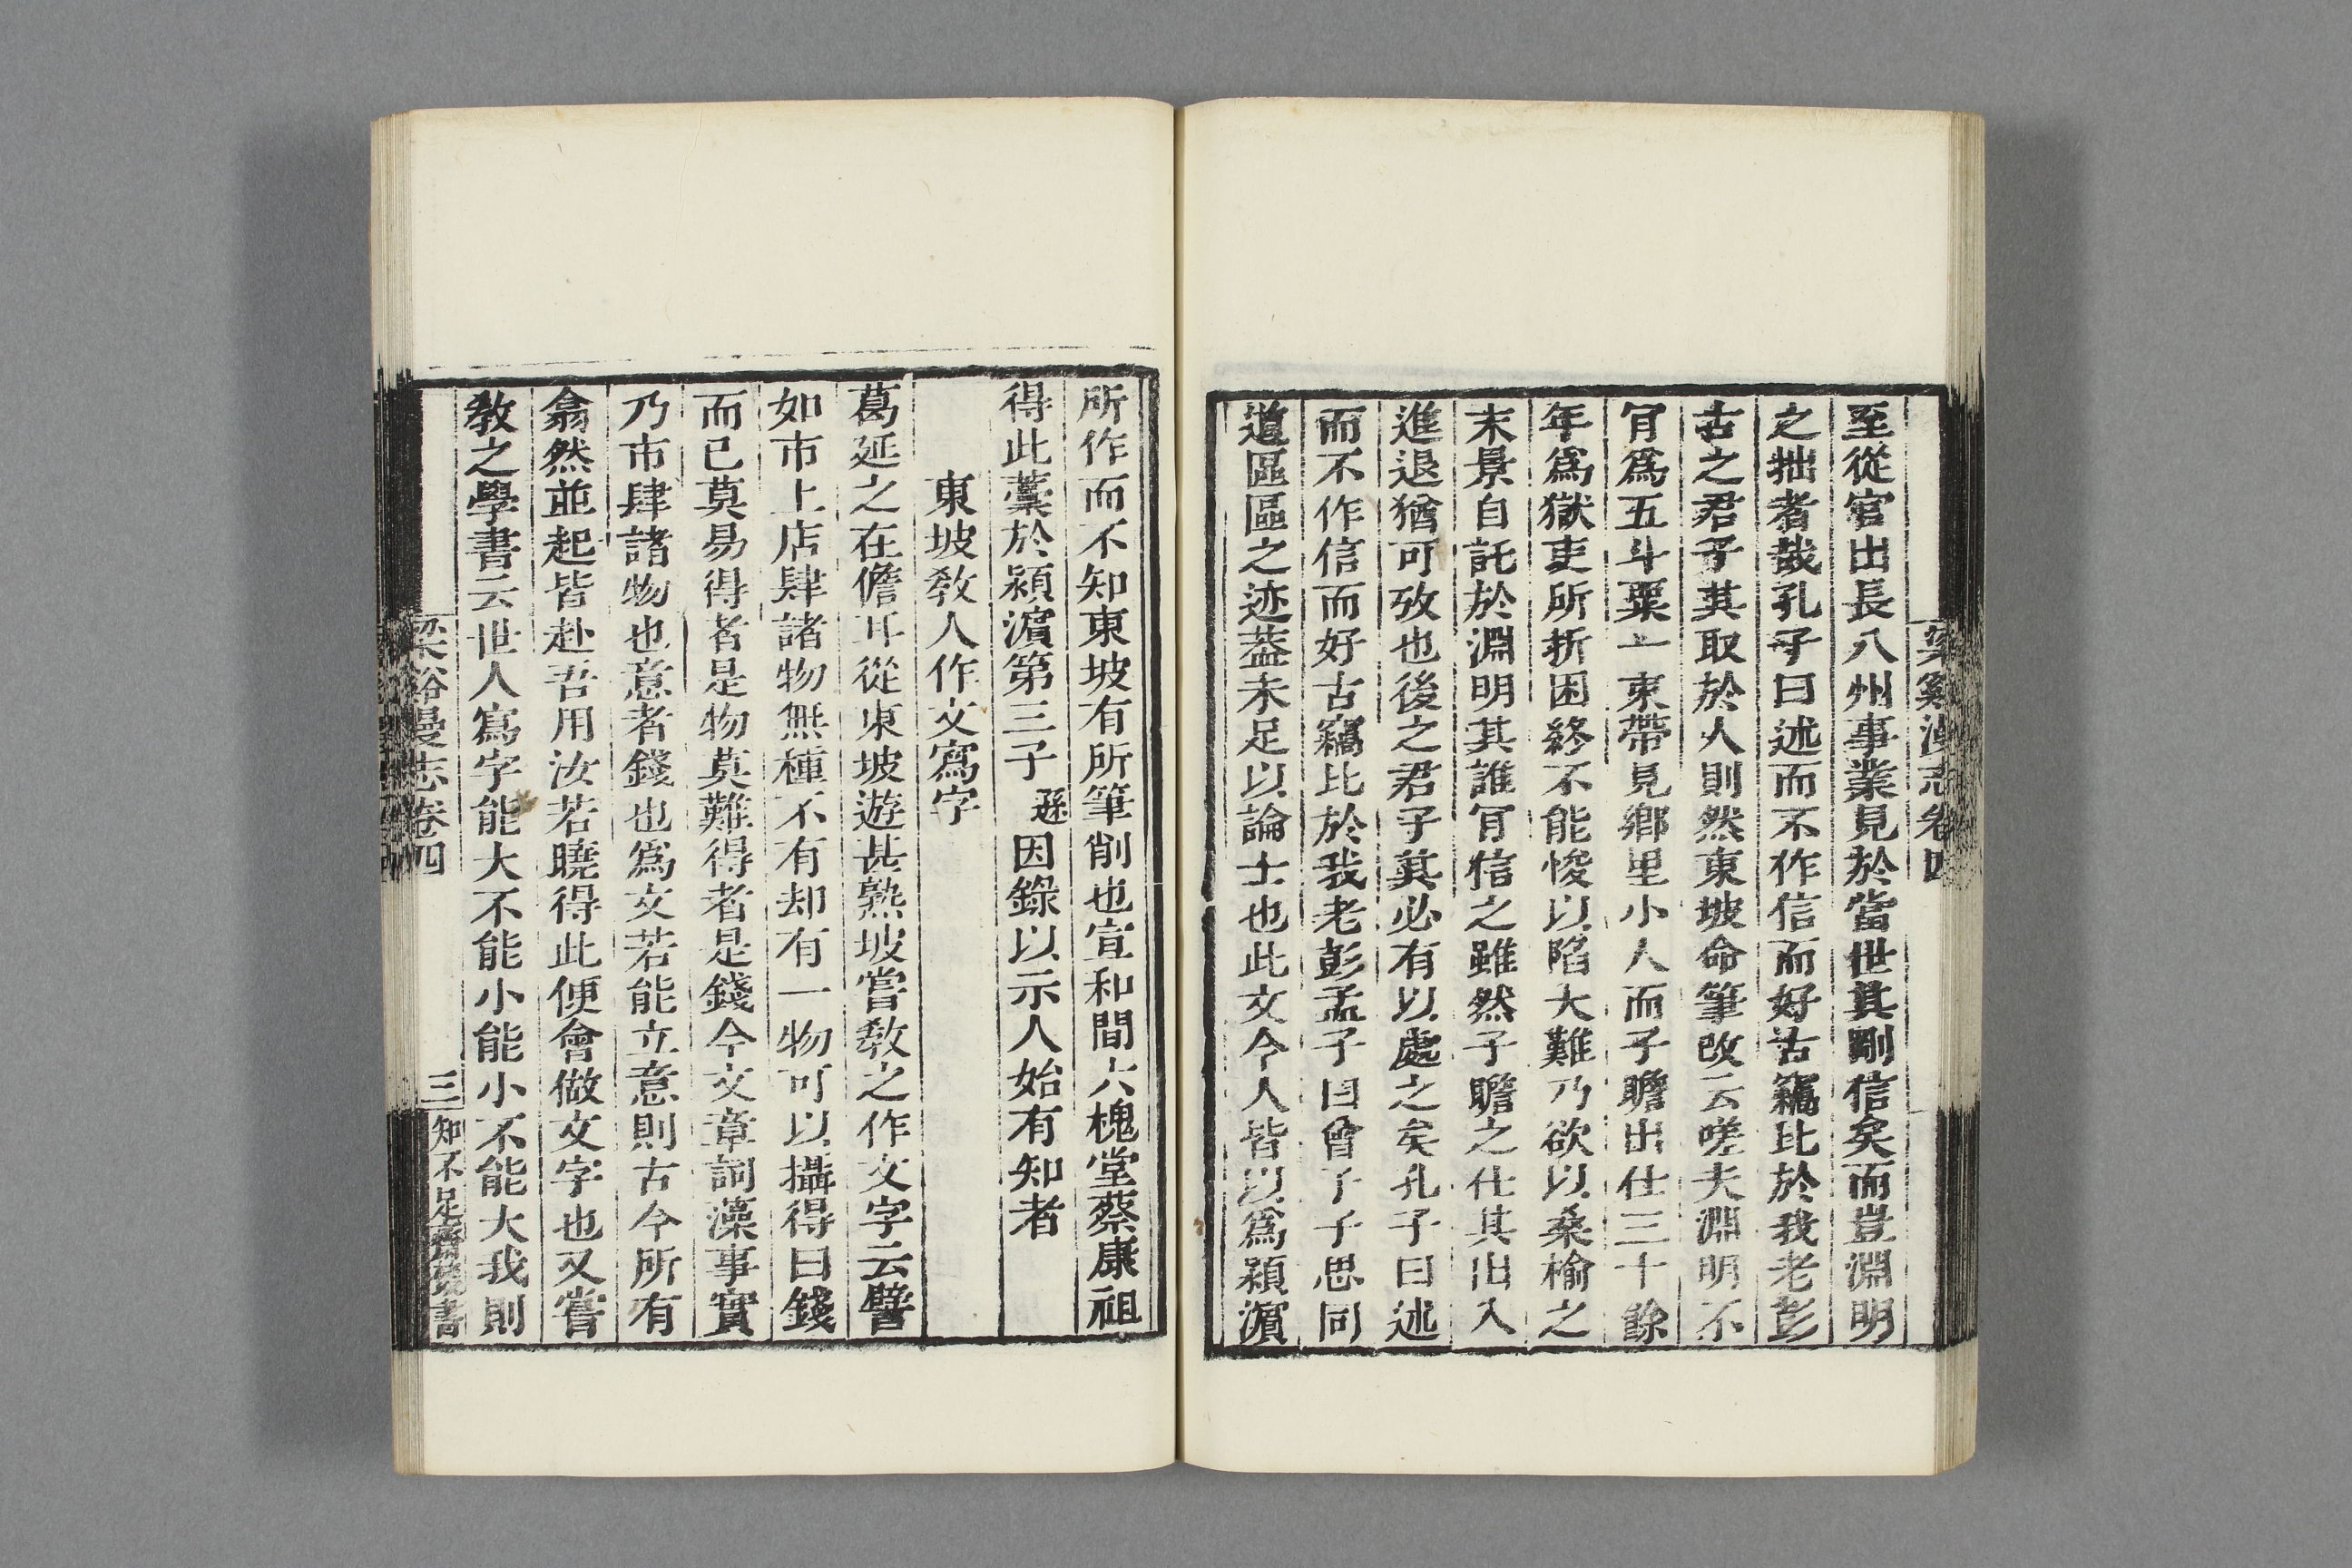 梁谿漫志卷四
至從官出長八州事業見於當世其剛信矣而豈淵明
之拙者哉孔子曰述而不作信而好古竊比於我老彭
古之君子其取於人則然東坡命筆改云嗟夫淵明不
肎爲五斗粟一束帶見鄉里小人而子瞻出仕三十餘
年爲獄吏所折困終不能悛以陷大難乃欲以桑榆之
末景自託於淵明其誰肎信之雖然子瞻之仕其出入
進退猶可攷也後之君子其必有以處之矣孔子曰述
而不作信而好古竊比於我老彭孟子曰曾子子思同
道區區之迹葢未足以論士也此文今人皆以爲潁濵
所作而不知東坡有所筆削也宣和間六槐堂蔡康祖
得此藁於潁濵第三子遜因錄以示人始有知者
東坡敎人作文寫字
葛延之在儋耳從東坡遊甚熟坡嘗敎之作文字云譬
如市上店肆諸物無種不有却有一物可以攝得曰錢
而已莫易得者是物莫難得者是錢今文章詞藻事實
乃市肆諸物也意者錢也爲文若能立意則古今所有
翕然並起皆赴吾用汝若曉得此便會做文字也又嘗
敎之學書云世人寫字能大不能小能小不能大我則
梁谿漫志卷四
三
知不足齋叢書